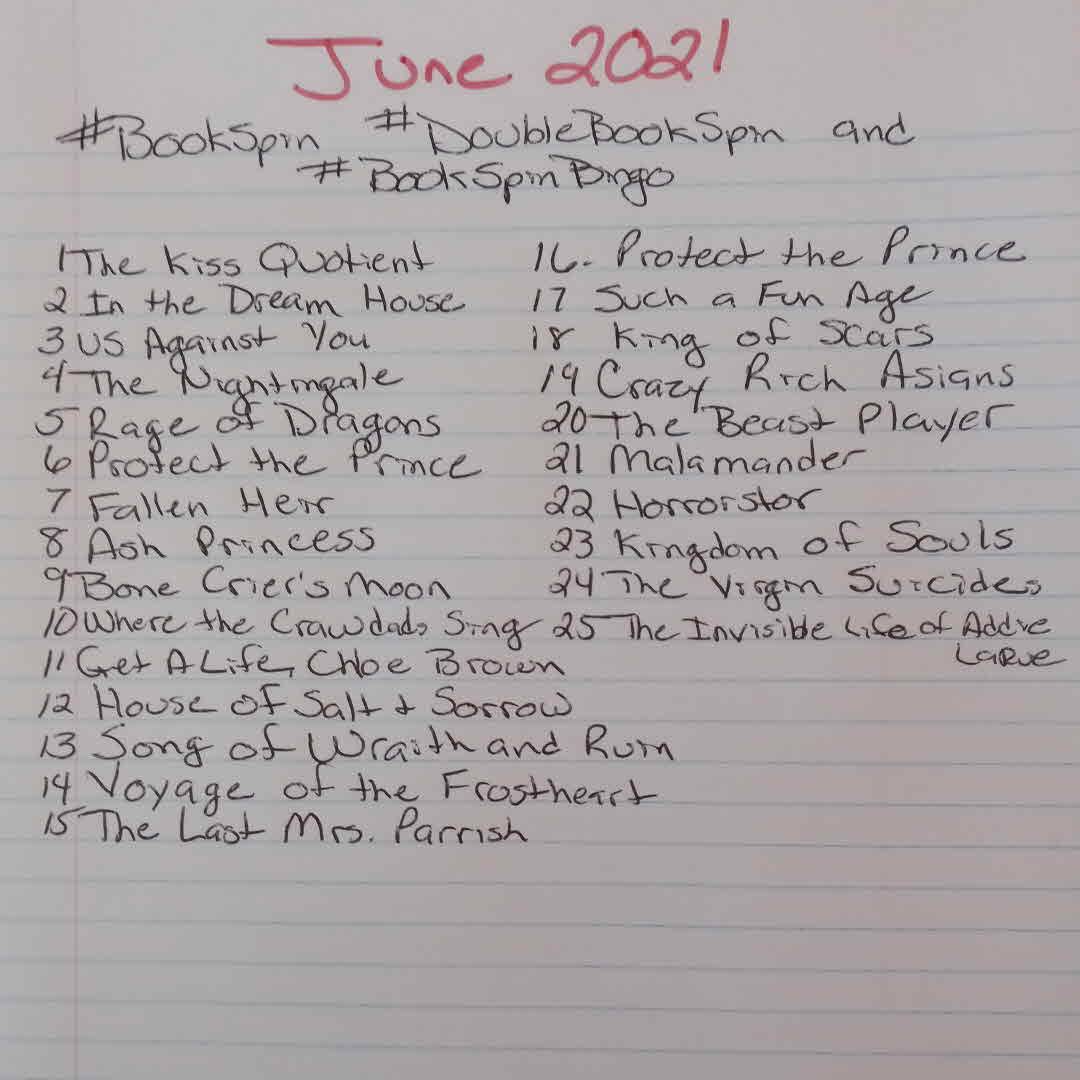 June 2021
#BookSpin #DoubleBookSpin and
#BookSpinBingo
1 The Kiss Quotient
2 In the Dream House
3 US Against You
4 The Nightingale
5 Rage of Dragons
6 Protect the Prince
7 Fallen Heir
8 Ash Princess
9 Bone Crier's Moon
10 Where the Crawdads Sing
11 Get A Life, Chloe Brown
12 House of Salt & Sorrow
13 Song of Wraith and Ruin
14 Voyage of the Frostheart
15 The Last Mrs. Parrish
16. Protect the Prince
17 Such a Fun Age
18 King of Scars
19 Crazy Rich Asians
20 The Beast Player
21 Malamander
22 Horrorstor
23 Kingdom of Souls
24 The Virgin Suicides
25 The Invisible Life of Addie
LaRue